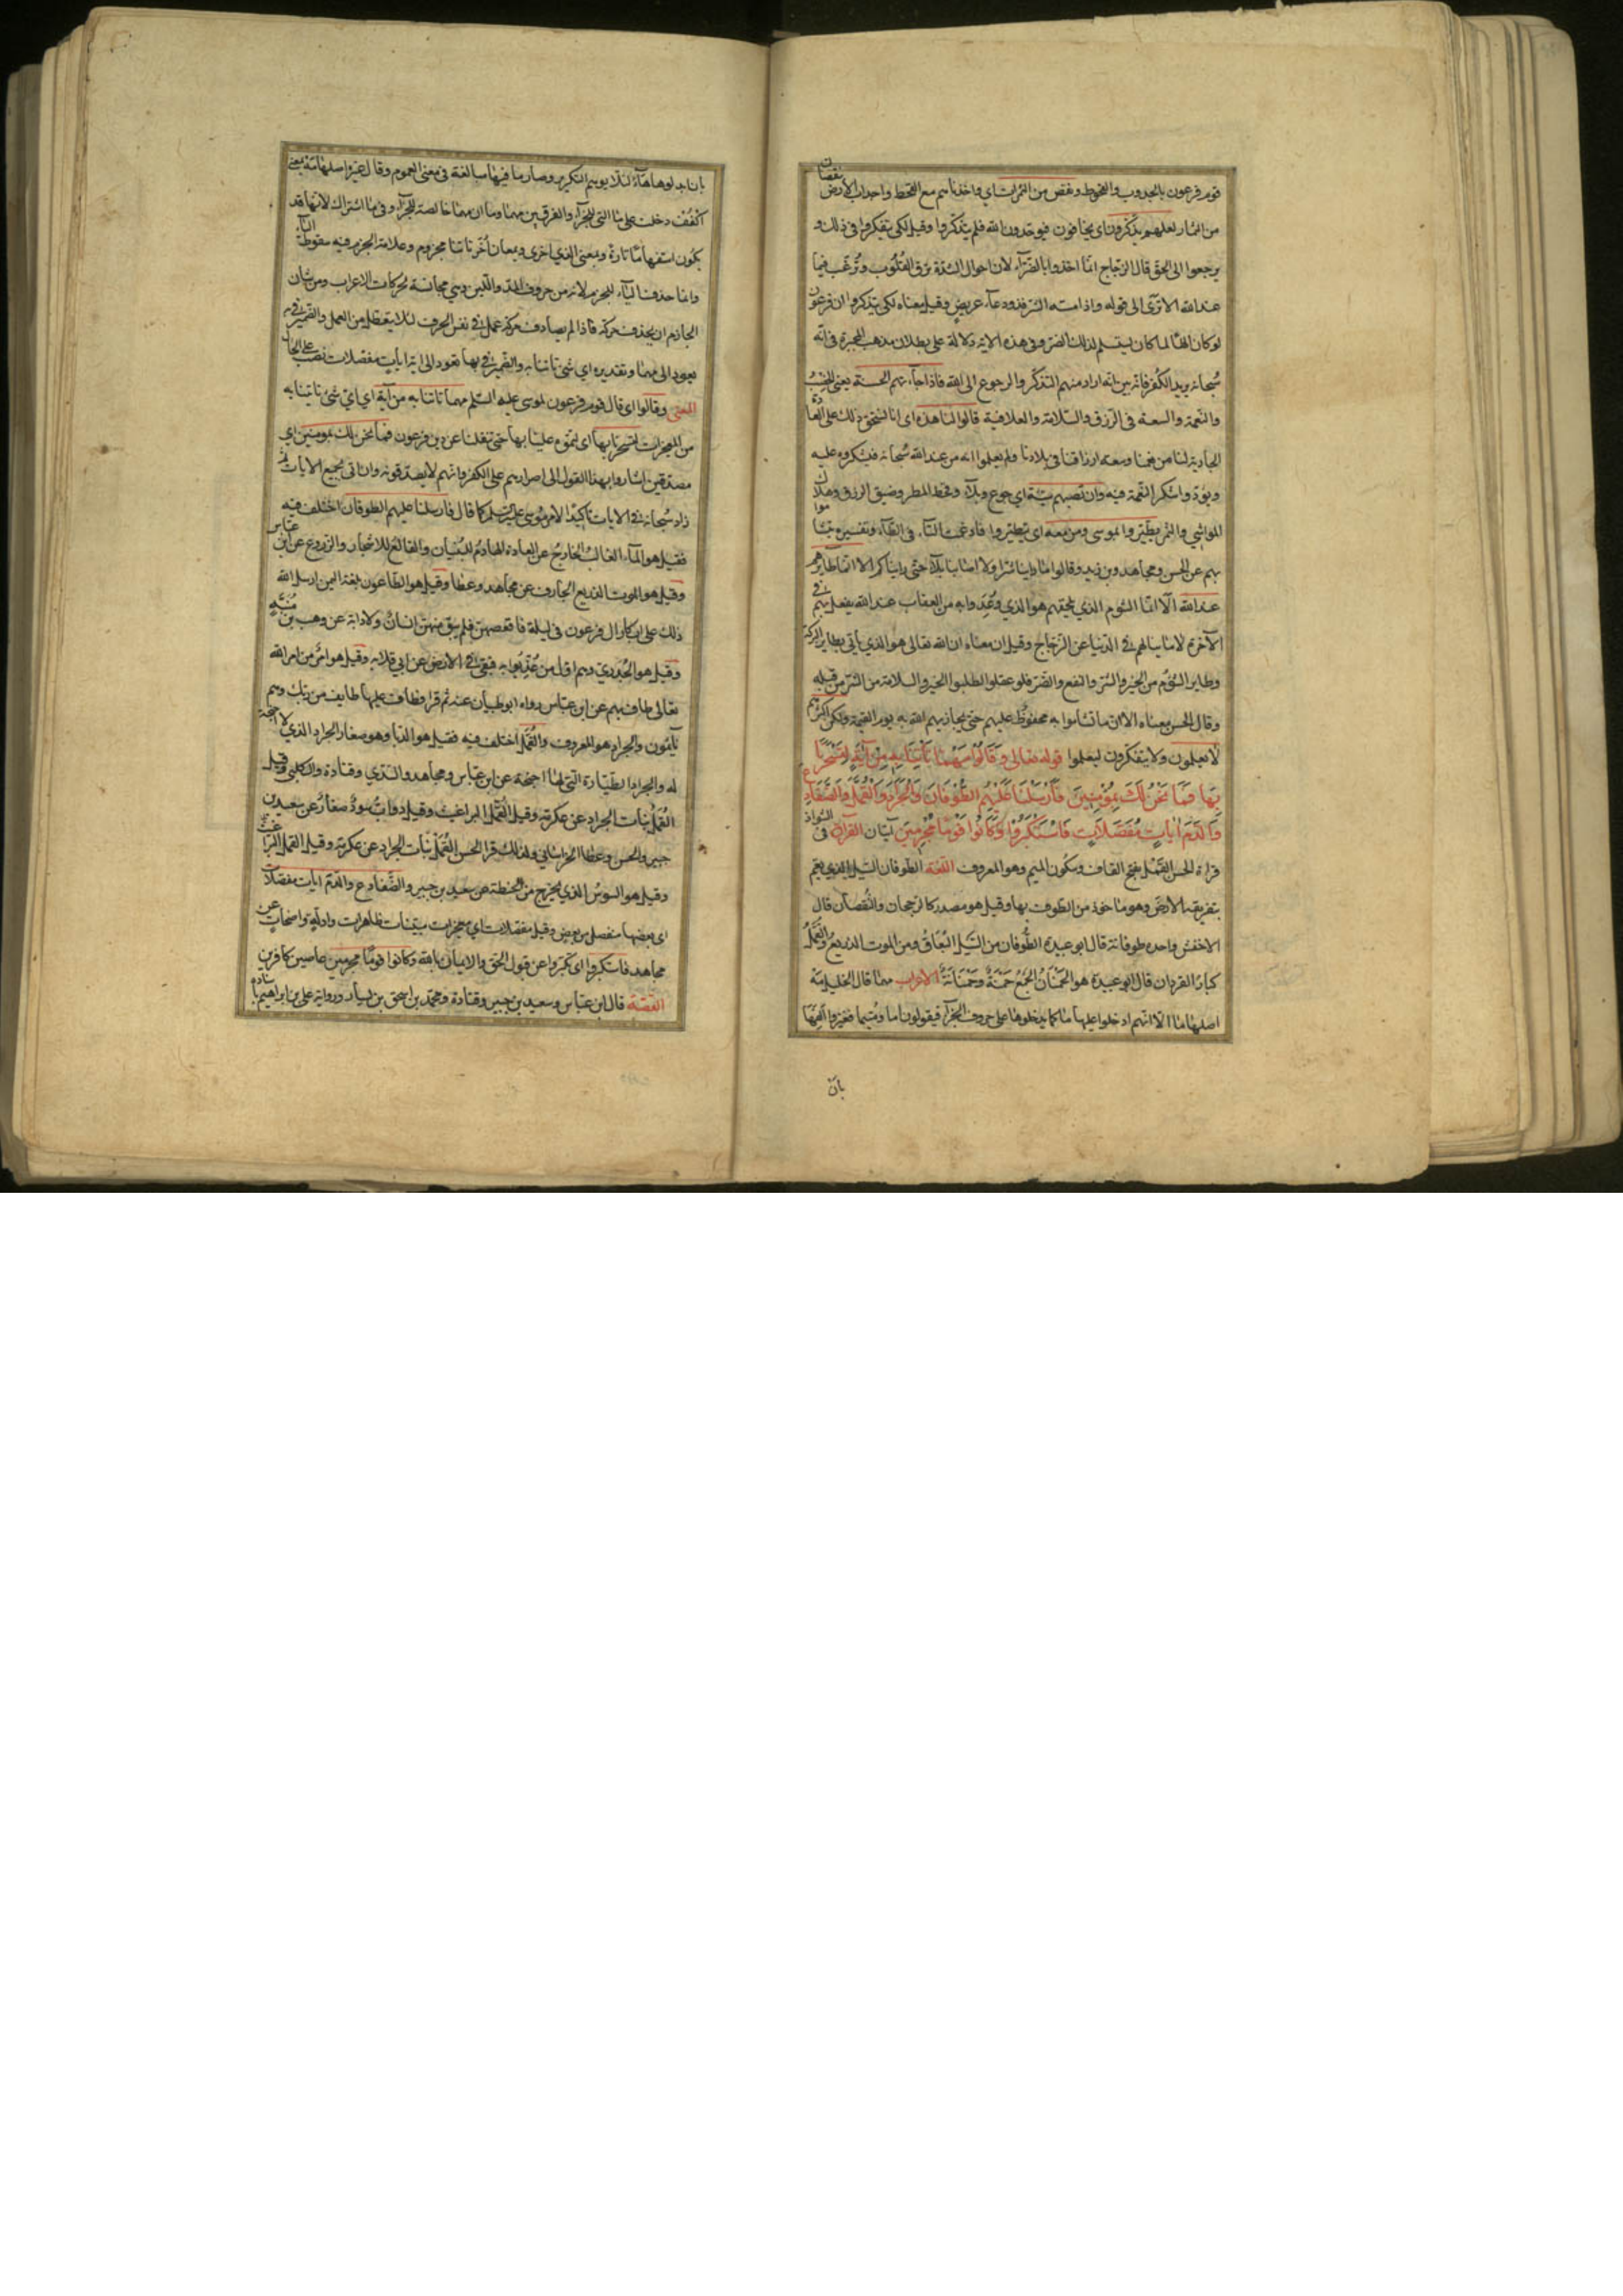 قوم فرعون بالجدوب والقحوط ونقص من الثمرات اي واخذناهم مع القحط واجداب الارض نقصان
من الثمار لعلهم يذكرون اي يخافون فيوحدون الله فلم يتذكروا وقيل لكي يتفكروا في ذلك و
يرجعوا الى الحق قال الزجاج انما اخذوا بالضراء لان احوال الشدة ترق القلوب وترغب فيما
عند الله الا ترى الى قوله واذا مسه الشر فذو دعاء عريض وقيل معناه لكي يتذكروا ان فرعون
لو كان الها لما كان يستسلم لذلك الضر وفي هذه الاية دلالة على بطلان مذهب المجبرة في انه
سبحانه يريد الكفر فانه بين انه اراد منهم التذكر والرجوع الى الله فاذا جاءتهم الحسنة يعني الخصب
والنعمة والسعة في الرزق والسلامة والعافية قالوا لنا هذه اي انا نستحق ذلك على العادة
الجارية لنا من نعمنا وسعة ارزاقنا في بلادنا ولم يعلموا انه من عند الله سبحانه فيشكروه عليه
ويؤدوا شكر النعمة فيه وان تصبهم سيئة اي جوع وبلاء وقحط المطر وضيق الرزق وهلاك
المواشي والثمر يطيروا بموسى ومن معه اي يتطيروا فادغمت التاء في الطاء وتفسيره يتشاموا
بهم عن الحسن ومجاهد وبن زيد وقالوا ما راينا شرا ولا اصابنا بلاء حتى رايناكم الا انما طايرهم
عند الله الا انما الشوم الذي يلحقهم هو الذي وعدوا به من العقاب عند الله يفعل بهم في
الآخرة لا ما ينالهم في الدنيا عن الزجاج وقيل ان معناه ان الله تعالى هو الذي ياتي بطاير البركة
وطاير الشؤم من الخير والشر والنفع والضر فلو عقلوا لطلبوا الخير والسلامة من الشر من قبله
وقال الحسن معناه الا ان ما تشاموا به محفوظ عليهم حتى يجازيهم الله به يوم القيمة ولكن اكثرهم
لا يعلمون ولا يتفكرون ليعلموا قوله تعالى وَقَالُوا مَهْمَا تَأْتِنَا بِهِ مِنْ آيَةٍ لِتَسْحَرَنَا
بِهَا فَمَا نَحْنُ لَكَ بِمُؤْمِنِينَ فَأَرْسَلْنَا عَلَيْهِمُ الطُّوفَانَ وَالْجَرَادَ وَالْقُمَّلَ وَالضَّفَادِعَ
وَالدَّمَ آيَاتٍ مُفَصَّلَاتٍ فَاسْتَكْبَرُوا وَكَانُوا قَوْمًا مُجْرِمِينَ آيتان القرآة في الشواذ
قراة الحسن القمل بفتح القاف وسكون الميم وهو المعروف اللغة الطوفان السيل الذي يعم
بتغريقه الارض وهو ماخوذ من الطوف بها وقيل هو مصدر كالرجحان والنقصان قال
الاخفش واحده طوفانة قال ابو عبيدة الطوفان من السيل البعاق ومن الموت الذريع والقمل
كبار القردان قال ابو عبيدة هو الحمنان الجمع حمنة وحمنانة الاعراب مهما قال الخليل مه
اصلها ما الا انهم ادخلوا عليها ما كما يدخلونها على حروف الجزآء فيقولون اما ومتيما فغيروا الفها
بان
بان ابدلوها هآء لئلا يوهم التكرير وصار ما فيها مبالغة في معنى العموم وقال غيره اصلها مه بمعنى
اكفف دخلت على ما التي للجزآء والفرق بين مهما وما ان مهما خالصة للجزآء وفي ما اشتراك لانها قد
يكون استفهاما تارة وبمعنى الذي اخرى وبمعان أخر تاتنا مجزوم وعلامة الجزم فيه سقوط اليآء
وانما حذفت اليآء للجزم لانه من حروف المد واللين وهي مجانسة لحركات الاعراب ومن شان
الجازم ان يحذف حركة فاذا لم يصادف حركة عمل في نفس الحرف لئلا يتعطل من العمل والضمير في به
يعود الى مهما وتقديره اي شئ تاتنا به والضمير في بها تعود الى اية ايات مفصلات نصب على الحال
المعنى وقالوا اي قال قوم فرعون لموسى عليه السلم مهما تاتنا به من آية اي اي شئ تاتينا به
من المعجزات لتسحرنا بها اي لتموه علينا بها حتى تنقلنا عن دين فرعون فما نحن لك بمومنين اي
مصدقين اشاروا بهذا القول الى اصرارهم على الكفر وانهم لا يصدقونه وان اتى بجميع الايات ثم
زاد سبحانه في الايات تاكيدا لامر موسى عليه السلم كما قال فارسلنا عليهم الطوفان اختلف فيه
فقيل هو المآء الغالب الخارج عن العادة الهادم للبنيان والقالع للاشجار والزروع عن ابن عباس
وقيل هو الموت الذريع الجارف عن مجاهد وعطا وقيل هو الطاعون بلغة اليمن ارسل الله
ذلك على ابكار ال فرعون في ليلة فاقعصهن فلم يبق منهن انسان ولا دابة عن وهب بن منبه
وقيل هو الجدري وهم اول من عذبوا به فبقي في الارض عن ابي قلابه وقيل هو امر من امر الله
تعالى طاف بهم عن ابن عباس رواه ابو ظبيان عنه ثم قرا فطاف عليها طايف من ربك وهم
نايمون والجراد هو المعروف والقمل اختلف فيه فقيل هو الدبا وهو صغار الجراد الذي لا اجنحة
له والجراد الطيارة التي لها اجنحة عن ابن عباس ومجاهد والسدي وقتادة والكلبي وقيل
القمل بنات الجراد عن عكرمة وقيل القمل البراغيث وقيل دواب سود صغار عن سعيد بن
جبير والحسن وعطا الخراساني ولذلك قرا الحسن القمل بنات الجراد عن عكرمة وقيل القمل البراغيث
وقيل هو السوس الذي يخرج من الحنطة عن سعيد بن جبير والضفادع والدم ايات مفصلات
اي بعضها منفصل من بعض وقيل مفصلات اي معجزات مبينات ظاهرات وادلة واضحات عن
مجاهد فاستكبروا اي تكبروا عن قبول الحق والايمان بالله وكانوا قوما مجرمين عاصين كافرين
القصة قال ابن عباس وسعيد بن جبير وقتادة ومحمد بن اسحق بن يسار ورواية علي بن ابراهيم باسناده